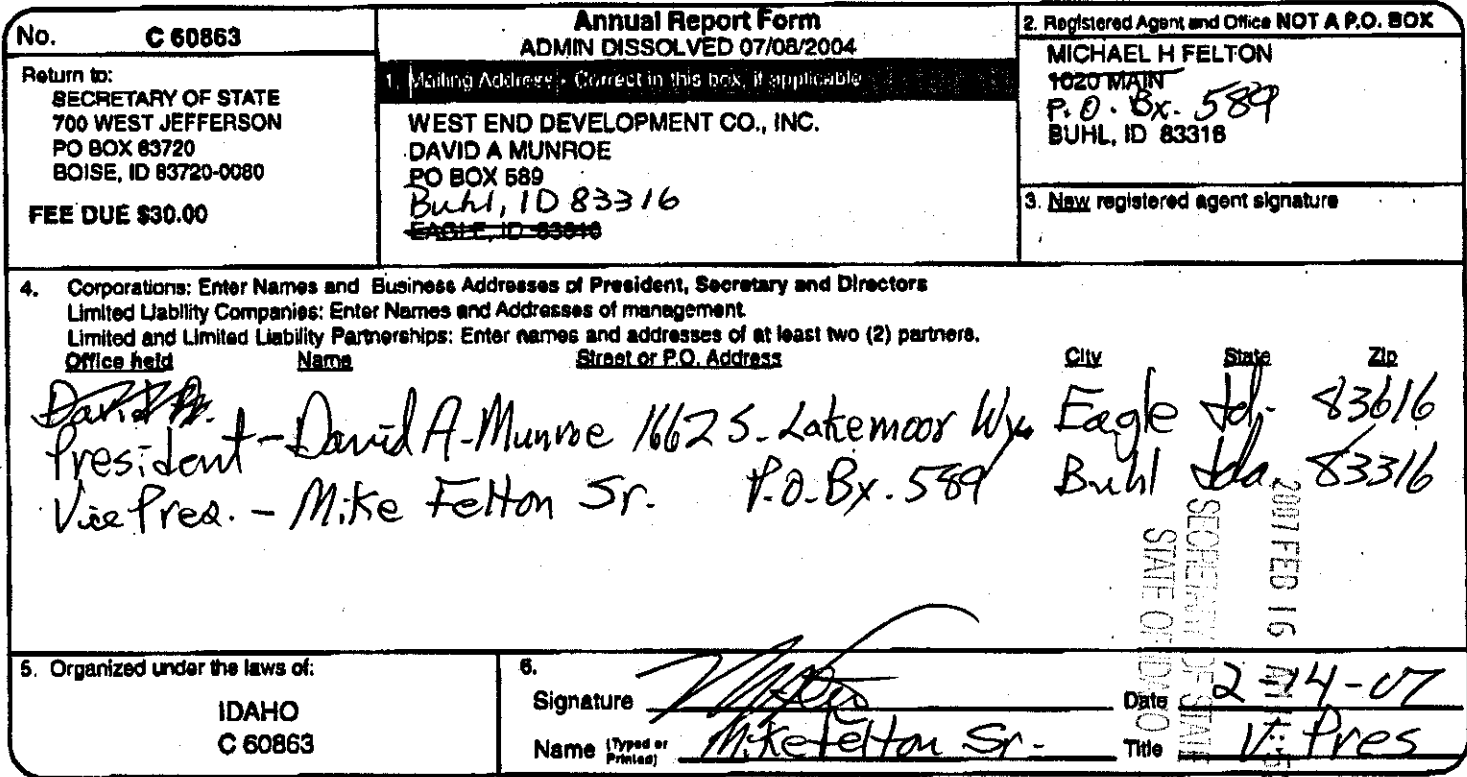 No. C 60863
Return to:
SECRETARY OF STATE
700 WEST JEFFERSON
PO BOX 83720
BOISE, ID 83720-0080
FEE DUE $30.00
Annual Report Form
ADMIN DISSOLVED 07/08/2004
1. Mailing Address - Correct in this box, if applicable
WEST END DEVELOPMENT CO., INC.
DAVID A MUNROE
PO BOX 589
Buhl, ID 83316
EAGLE, ID 83616
2. Registered Agent and Office NOT A P.O. BOX
MICHAEL H FELTON
1020 MAIN
P.O. Bx. 589
BUHL, ID 83316
3. New registered agent signature
4. Corporations: Enter Names and Business Addresses of President, Secretary and Directors
Limited Liability Companies: Enter Names and Addresses of management.
Limited and Limited Liability Partnerships: Enter names and addresses of at least two (2) partners.
Office held Name Street or P.O. Address City State Zip
David
President - David A. Munroe 1662 S. Lakemoor Wy. Eagle Id. 83616
Vice Pres. - Mike Felton Sr. P.O. Bx. 589 Buhl Ida. 83316
2007 FEB 16
SECRETARY OF STATE
STATE OF IDAHO
5. Organized under the laws of:
IDAHO
C 60863
6.
Signature Date 2-14-07
Name (Typed or Printed) Mike Felton Sr. Title V. Pres